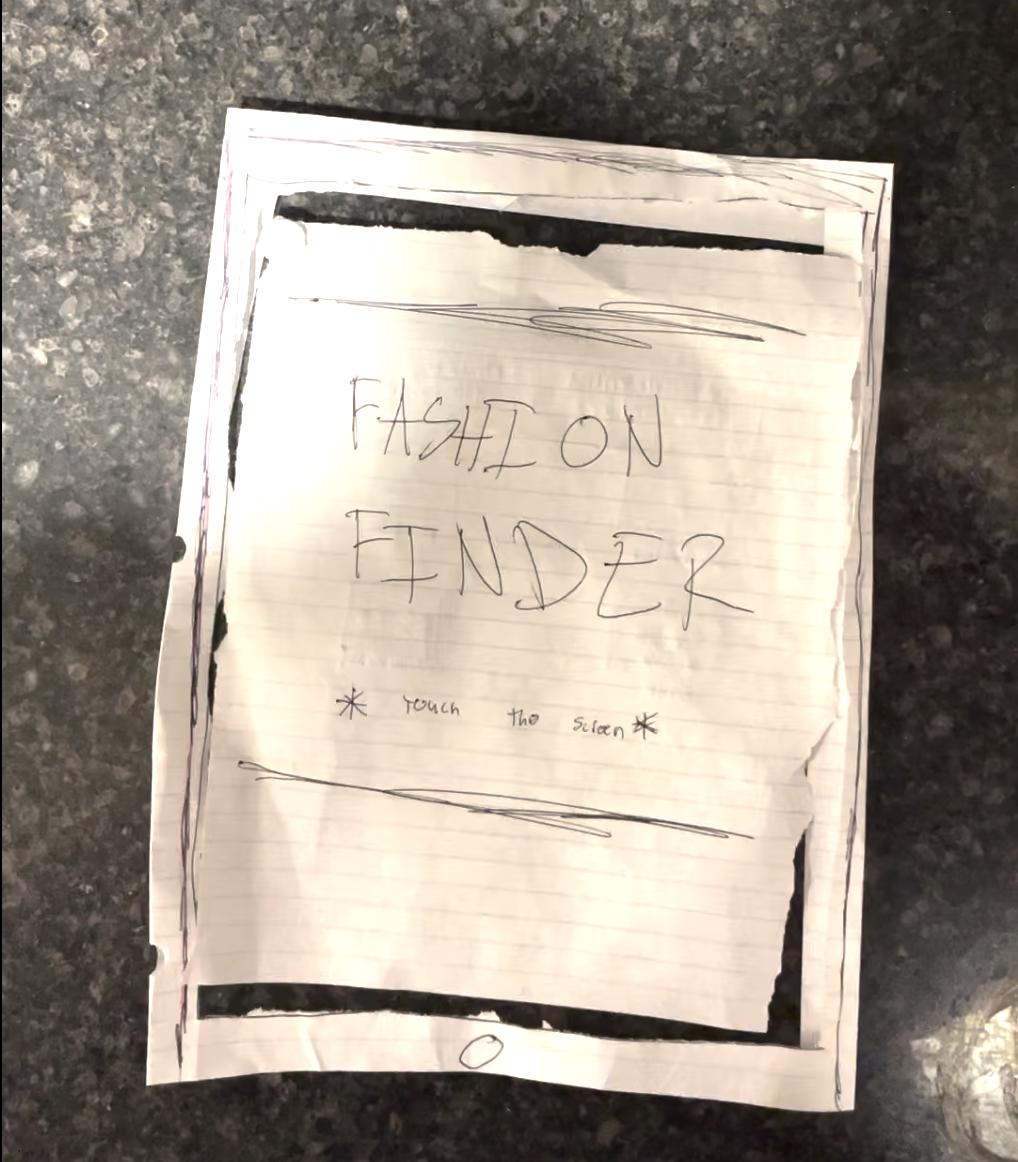 FASHION
FINDER
* Touch the screen *